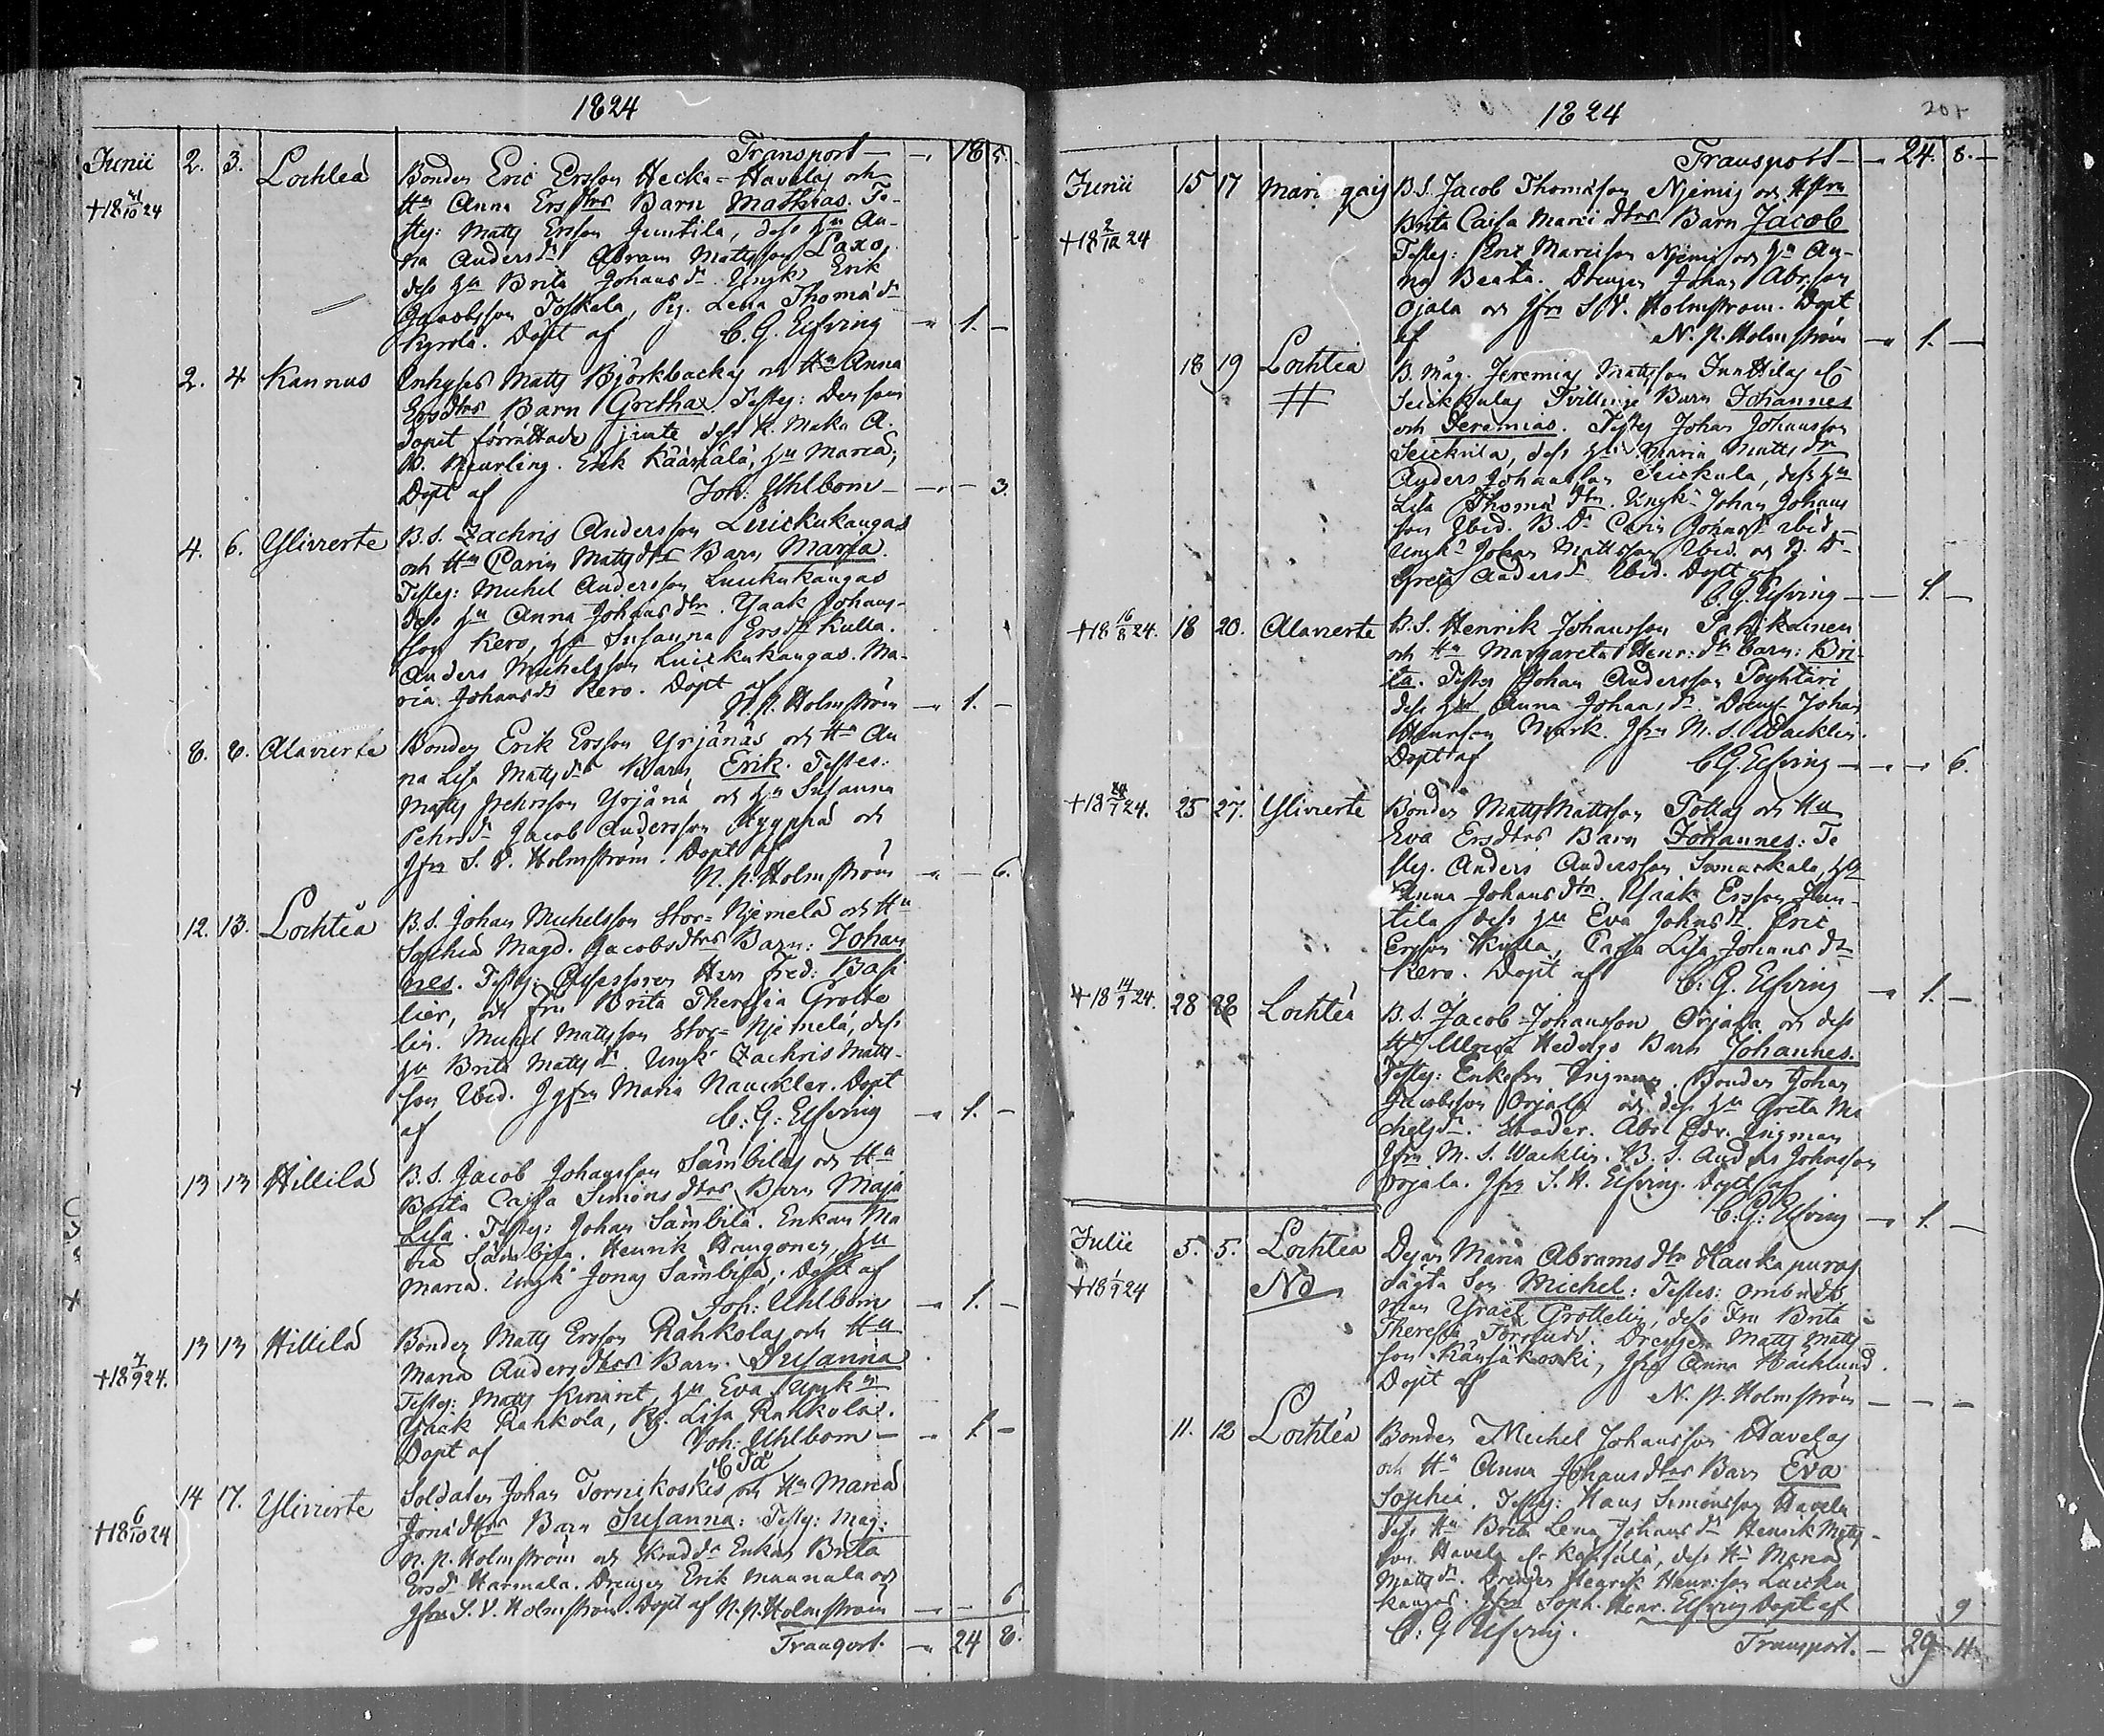 1824
Transport — 18 5.
Junii 2. 3. Lochteå Bonden Eric Ersson Hecka-Havelas och
+18 21/10 24 Hu Anna Ersdtrs Barn Mathias. Te-
stes: Matts Ersson Junttila, dess hu An-
na Andersdr Abram Mattsson Laxo,
dess hu Brita Johansdr Ungk: Erik
Jacobsson Toskala, Pig. Lena Thomædr
Kyrola. Döpt af C. G. Elfving — 1. —
2. 4 Kannus Inhyses Matts Björkbackas och Hu Anna
Ersdtrs Barn Gretha. Testes: Den som
dopet förrättade jemte dess k. Maka A.
Neurling. Erik Kääriälä, hu Maria;
Döpt af Joh: Uhlbom — 3.
4. 6. Ylivierte B. S. Zachris Andersson Luickukangas
och Hu Carin Mattsdtrs Barn Maria.
Testes: Michel Andersson Luickukangas
dess hu Anna Johansdtr. Ysaak Johans-
son Kero, hu Susanna Ersdr Kulla.
Anders Michelsson Luickukangas. Ma-
ria Johansdr Kero. Döpt af
N. P. Holmström — 1. —
8. 8. Alavierte Bonden Erik Ersson Yrjänäs och Hu An
na Lisa Mattsdrs Barn Erik. Testes:
Matts Pehrsson Yrjänä och hu Susanna
Pehrsdr Jacob Andersson och
Jfru S. V. Holmström. Döpt af
N. P. Holmström — 6.
12. 13. Lochteå B. S. Johan Michelsson Stor-Njemelä och Hu
Sophia Magd. Jacobsdtrs Barn: Johan
nes. Testes: Assessoren Herr Fred: Bass
lier, och Fru Brita Theresia Grotte
lin. Michel Mattsson Stor-Njemelä, dess
hu Brita Mattsdr Ungk: Zachris Matts-
son Ibid. Jgfru Maria Nauckler. Döpt
af C: G: Elfving — 1. —
13 13 Hillilä B. S. Jacob Johansson Sämbiläs och Hu
Brita Cajsa Simonsdtrs Barn Maja
Lisa. Testes: Johan Sämbilä. Enkan Ma
ria Sämbilä. Henrik Hongonen, hu
Maria. Ungk: Jonas Sämbilä. Döpt af
Joh: Uhlbom — 1. —
13 13 Hillilä Bonden Matts Ersson Rahkolas och Hu
+18 7/9 24. Maria Andersdtrs Barn Susanna
Testes: Matts Kiviniet, hu Eva. Ungk:
Ysaak Rahkola, Pig. Lisa Rahkola.
Döpt af Joh: Uhlbom — 1. —
14 17. Ylivierte Soldaten Johan Tornikoskis och Hu Maria
+18 6/10 24 Jonædtrs Barn Susanna: Testes: Mag:
N. P. Holmström och Enkan Brita
Ersdr Harmala. Drengen Erik Maunula och
Jfru S. V. Holmström. Döpt af N. P. Holmström — 6
Transport. — 24 8.
1824
207
Transport — 24. 8. —
Junii 15 17 B. S. Jacob Thomæson Njemis och Hstru
+18 2/12 24 Brita Caisa Marci dtrs Barn Jacob
Testes: Eric Marcison Njemis och hu An-
na Beata. Drengen Johan Abr:son
Ojala och Jfru S. V. Holmström. Döpt
af N. P. Holmström — 1. —
18 19 Lochteå B. Måg. Jeremias Mattsson Junttilas et
# Seickulas Tvillinge Barn Johannes
och Jeremias. Testes Johan Johansson
Seickula, dess hu Maria Mattsdr
Anders Johansson Seickula, dess hu
Lisa Thomædtr. Ungk: Johan Johans
son Ibid. B. Dr Carin Johansdr Ibid.
Ungk: Johan Mattsson Ibid. och B. Dr
Greta Andersdr Ibid. Döpt af
C. G. Elfving — 1. —
+18 16/8 24. 18 20. Alavierte B. S. Henrik Johansson Pahikainen
och Hu Margareta Henr: drs barn: Bri-
ta. Testes Johan Andersson Poyhtäri
dess hu Anna Johansdr. Dreng Johan
Henrsson Mark. Jfru M. S. Wacklin.
Döpt af C G Elfving — 6.
+18 24/7 24. 25 27. Ylivierte Bonden Matts Mattsson Tollas och Hu
Eva Ersdtrs Barn Johannes: Te
stes. Anders Andersson Somackala, hu
Anna Johansdtr. Ysaak Ersson Hun-
tila dess hu Eva Johnsdr. Eric
Ersson Kulla, Caisa Lisa Johansdr
Kero. Döpt af C. G. Elfving — 1. —
+18 14/9 24. 28 28 Lochteå B. S. Jacob Johansson Orjala och dess
Hu Ulrica Hedvigs Barn Johannes.
Testes: Enkefru Ingman. Bonden Johan
Jacobsson Orjala och dess hu Greta Mi
chelsdr. Studer. Abr. Edv. Ingman
Jfru M. S. Wacklin. B. S. Anders Johansson
Orjala. Jfru S. H. Elfving. Döpt af
C: G: Elfving — 1. —
Julii 5. 5. Lochteå Dejan Maria Abramsdtr Haukapuros
+18 1/9 24 No oägta son Michel: Testes: Ombuds
man Ysrael Grottelin, dess Fru Brita
Theresia Törnudd. Drengen Matts Matts-
son Känsäkoski, Jfru Anna Häcklund.
Döpt af N. P. Holmström — — —
11. 12 Lochteå Bonden Michel Johansson Havelas
och Hu Anna Johansdtrs Barn Eva
Sophia. Testes: Hans Simonsson Havela
dess Hu Brita Lena Johansdr Henrik Matts-
son Havela et Kapsälä, dess Hu Maria
Mattsdr. Drengen Henrik Henrsson Luicku
kangas. Jfru Soph. Henr. Elfving Döpt af 9
C: G Elfving.
Transport. — 29 11